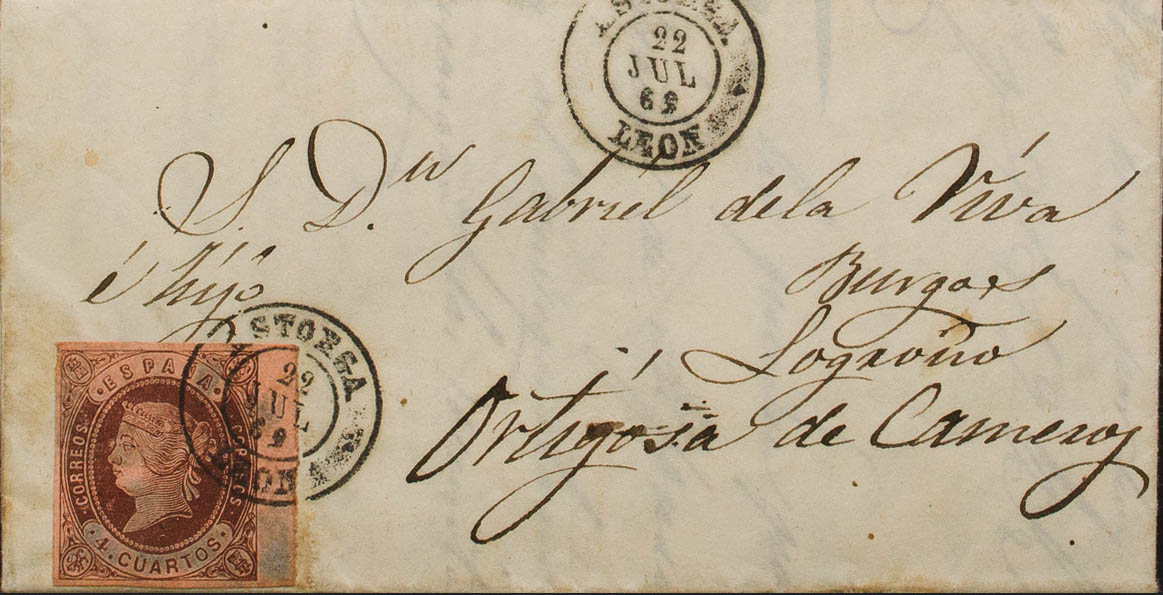 ASTORGA
22
JUL
69
LEON
S. Dn Gabriel de la Viva
é hijo
Burgos
Logroño
Ortigosa de Cameros
ASTORGA
22
JUL
69
LEON
ESPAÑA
CORREOS
CORREOS
4 CUARTOS